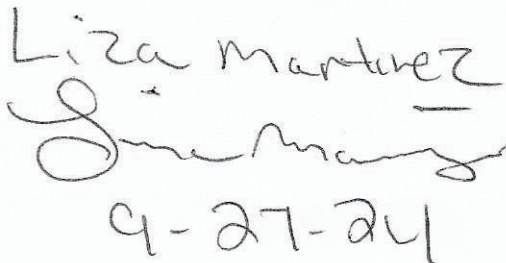 Liza Martinez
9-27-24